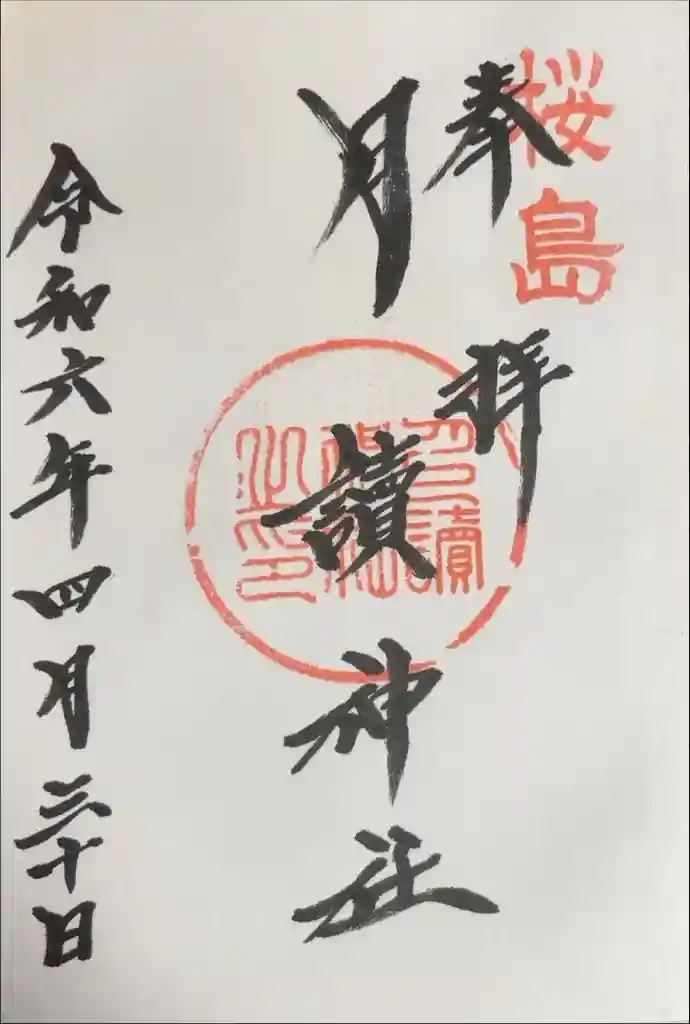 桜島
奉拝
月讀神社
令和六年四月三十日